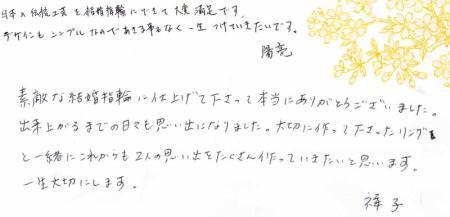 日本の伝統工芸を結婚指輪にできて大変満足です。
デザインもシンプルなのであきる事もなく一生つけていきたいです。
陽亮
素敵な結婚指輪に仕上げて下さって本当にありがとうございました。
出来上がるまでの日々も思い出になりました。大切に作って下さったリング
と一緒にこれからも2人の思い出をたくさん作っていきたいと思います。
一生大切にします。
祥子